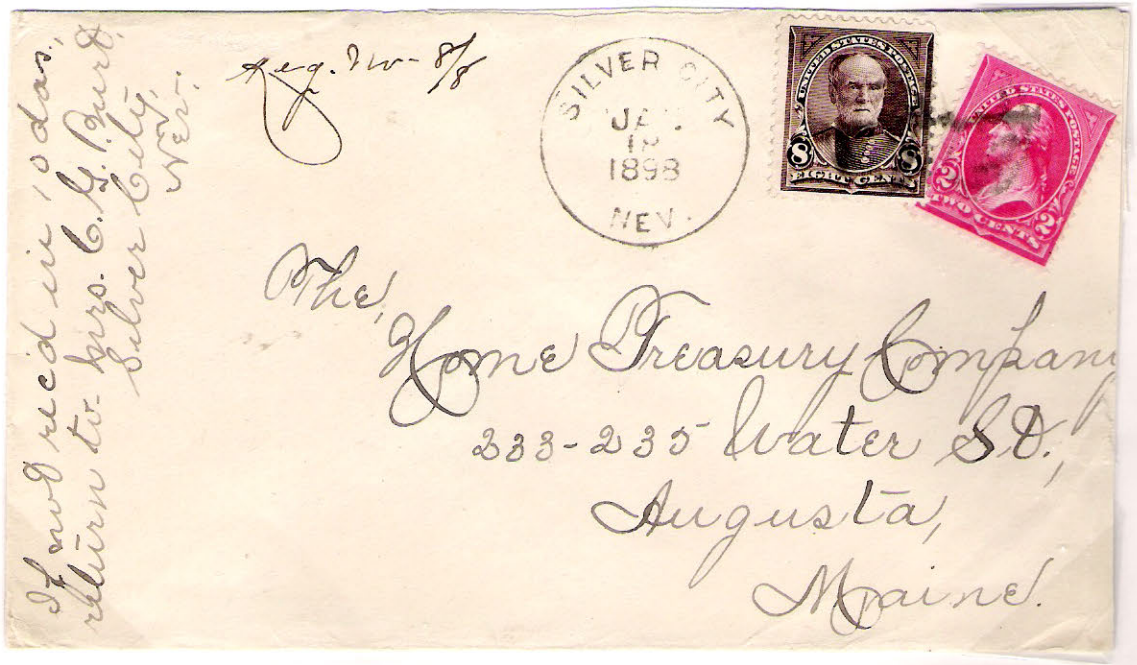 If not rec'd in 10 das.,
return to Mrs. C. G. Burd,
Silver City,
Nev.
Reg. No - 8/8
SILVER CITY
JA
18
1898
NEV.
UNITED STATES POSTAGE
8 8
EIGHT CENTS
UNITED STATES POSTAGE
2 2
TWO CENTS
The,
Home Treasury Company
233-235 Water St.,
Augusta,
Maine.